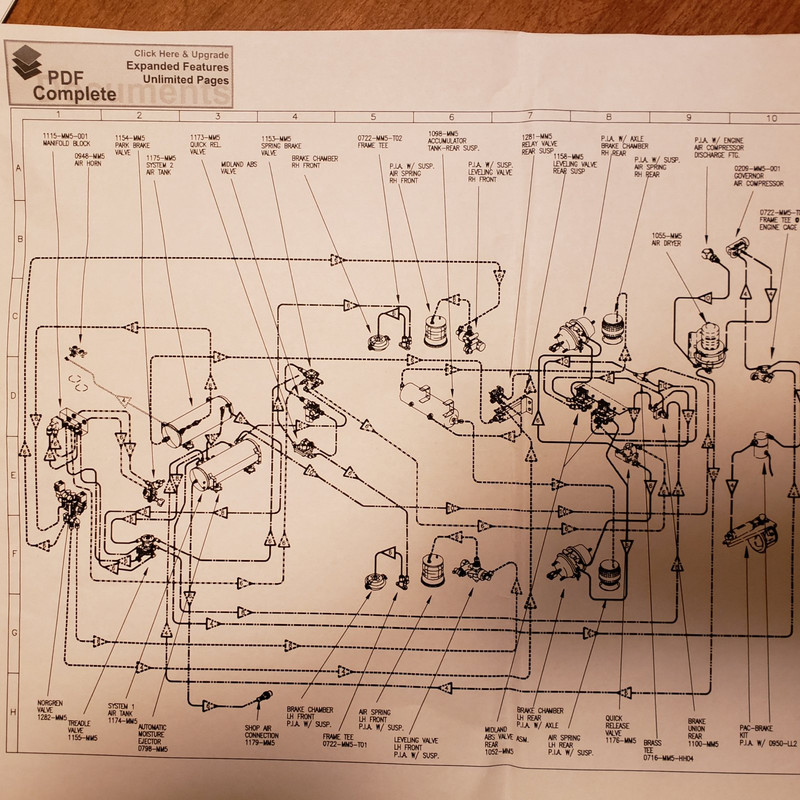 Click Here & Upgrade
Expanded Features
Unlimited Pages
PDF
Complete
Documents
1 2 3 4 5 6 7 8 9 10
1115-MM5-001
MANIFOLD BLOCK
0948-MM5
AIR HORN
1154-MM5
PARK BRAKE
VALVE
1175-MM5
SYSTEM 2
AIR TANK
1173-MM5
QUICK REL.
VALVE
MIDLAND ABS
VALVE
1153-MM5
SPRING BRAKE
VALVE
BRAKE CHAMBER
RH FRONT
0722-MM5-T02
FRAME TEE
P.I.A. W/ SUSP.
AIR SPRING
RH FRONT
1098-MM5
ACCUMULATOR
TANK-REAR SUSP.
P.I.A. W/ SUSP.
LEVELING VALVE
RH FRONT
1281-MM5
RELAY VALVE
REAR SUSP
1158-MM5
LEVELING VALVE
REAR SUSP
P.I.A. W/ AXLE
BRAKE CHAMBER
RH REAR
P.I.A. W/ SUSP.
AIR SPRING
RH REAR
P.I.A. W/ ENGINE
AIR COMPRESSOR
DISCHARGE FTG.
0209-MM5-001
GOVERNOR
AIR COMPRESSOR
1055-MM5
AIR DRYER
0722-MM5-T
FRAME TEE @
ENGINE CAGE
A
B
C
D
E
F
G
H
NORGREN
VALVE
1282-MM5
TREADLE
VALVE
1155-MM5
SYSTEM 1
AIR TANK
1174-MM5
AUTOMATIC
MOISTURE
EJECTOR
0798-MM5
SHOP AIR
CONNECTION
1179-MM5
BRAKE CHAMBER
LH FRONT
P.I.A. W/ SUSP.
FRAME TEE
0722-MM5-T01
AIR SPRING
LH FRONT
P.I.A. W/ SUSP.
LEVELING VALVE
LH FRONT
P.I.A. W/ SUSP.
MIDLAND
ABS VALVE ASM.
REAR
1052-MM5
BRAKE CHAMBER
LH REAR
P.I.A. W/ AXLE
AIR SPRING
LH REAR
P.I.A. W/ SUSP.
QUICK
RELEASE
VALVE
1176-MM5
BRASS
TEE
0716-MM5-HH04
BRAKE
UNION
REAR
1100-MM5
PAC-BRAKE
KIT
P.I.A. W/ 0950-LL2